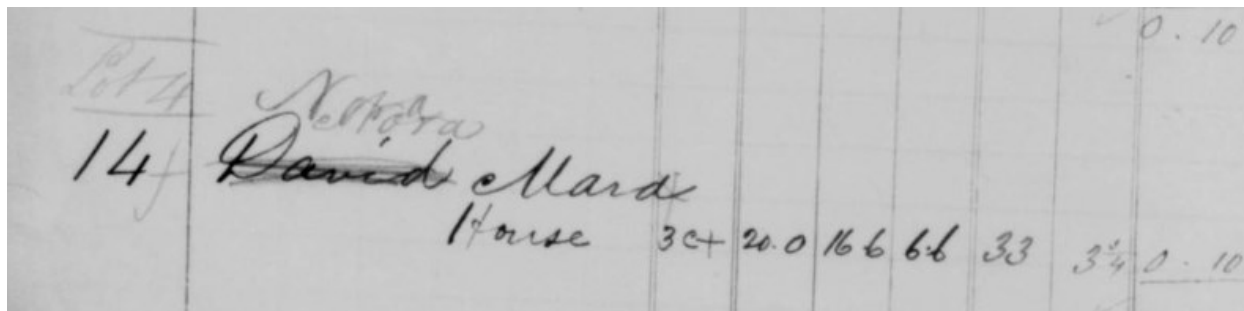 0 . 10
Lot 4
14 f David Mard
House 3c+ 20.0 16 6 6.6 33 3 3/4 0 . 10